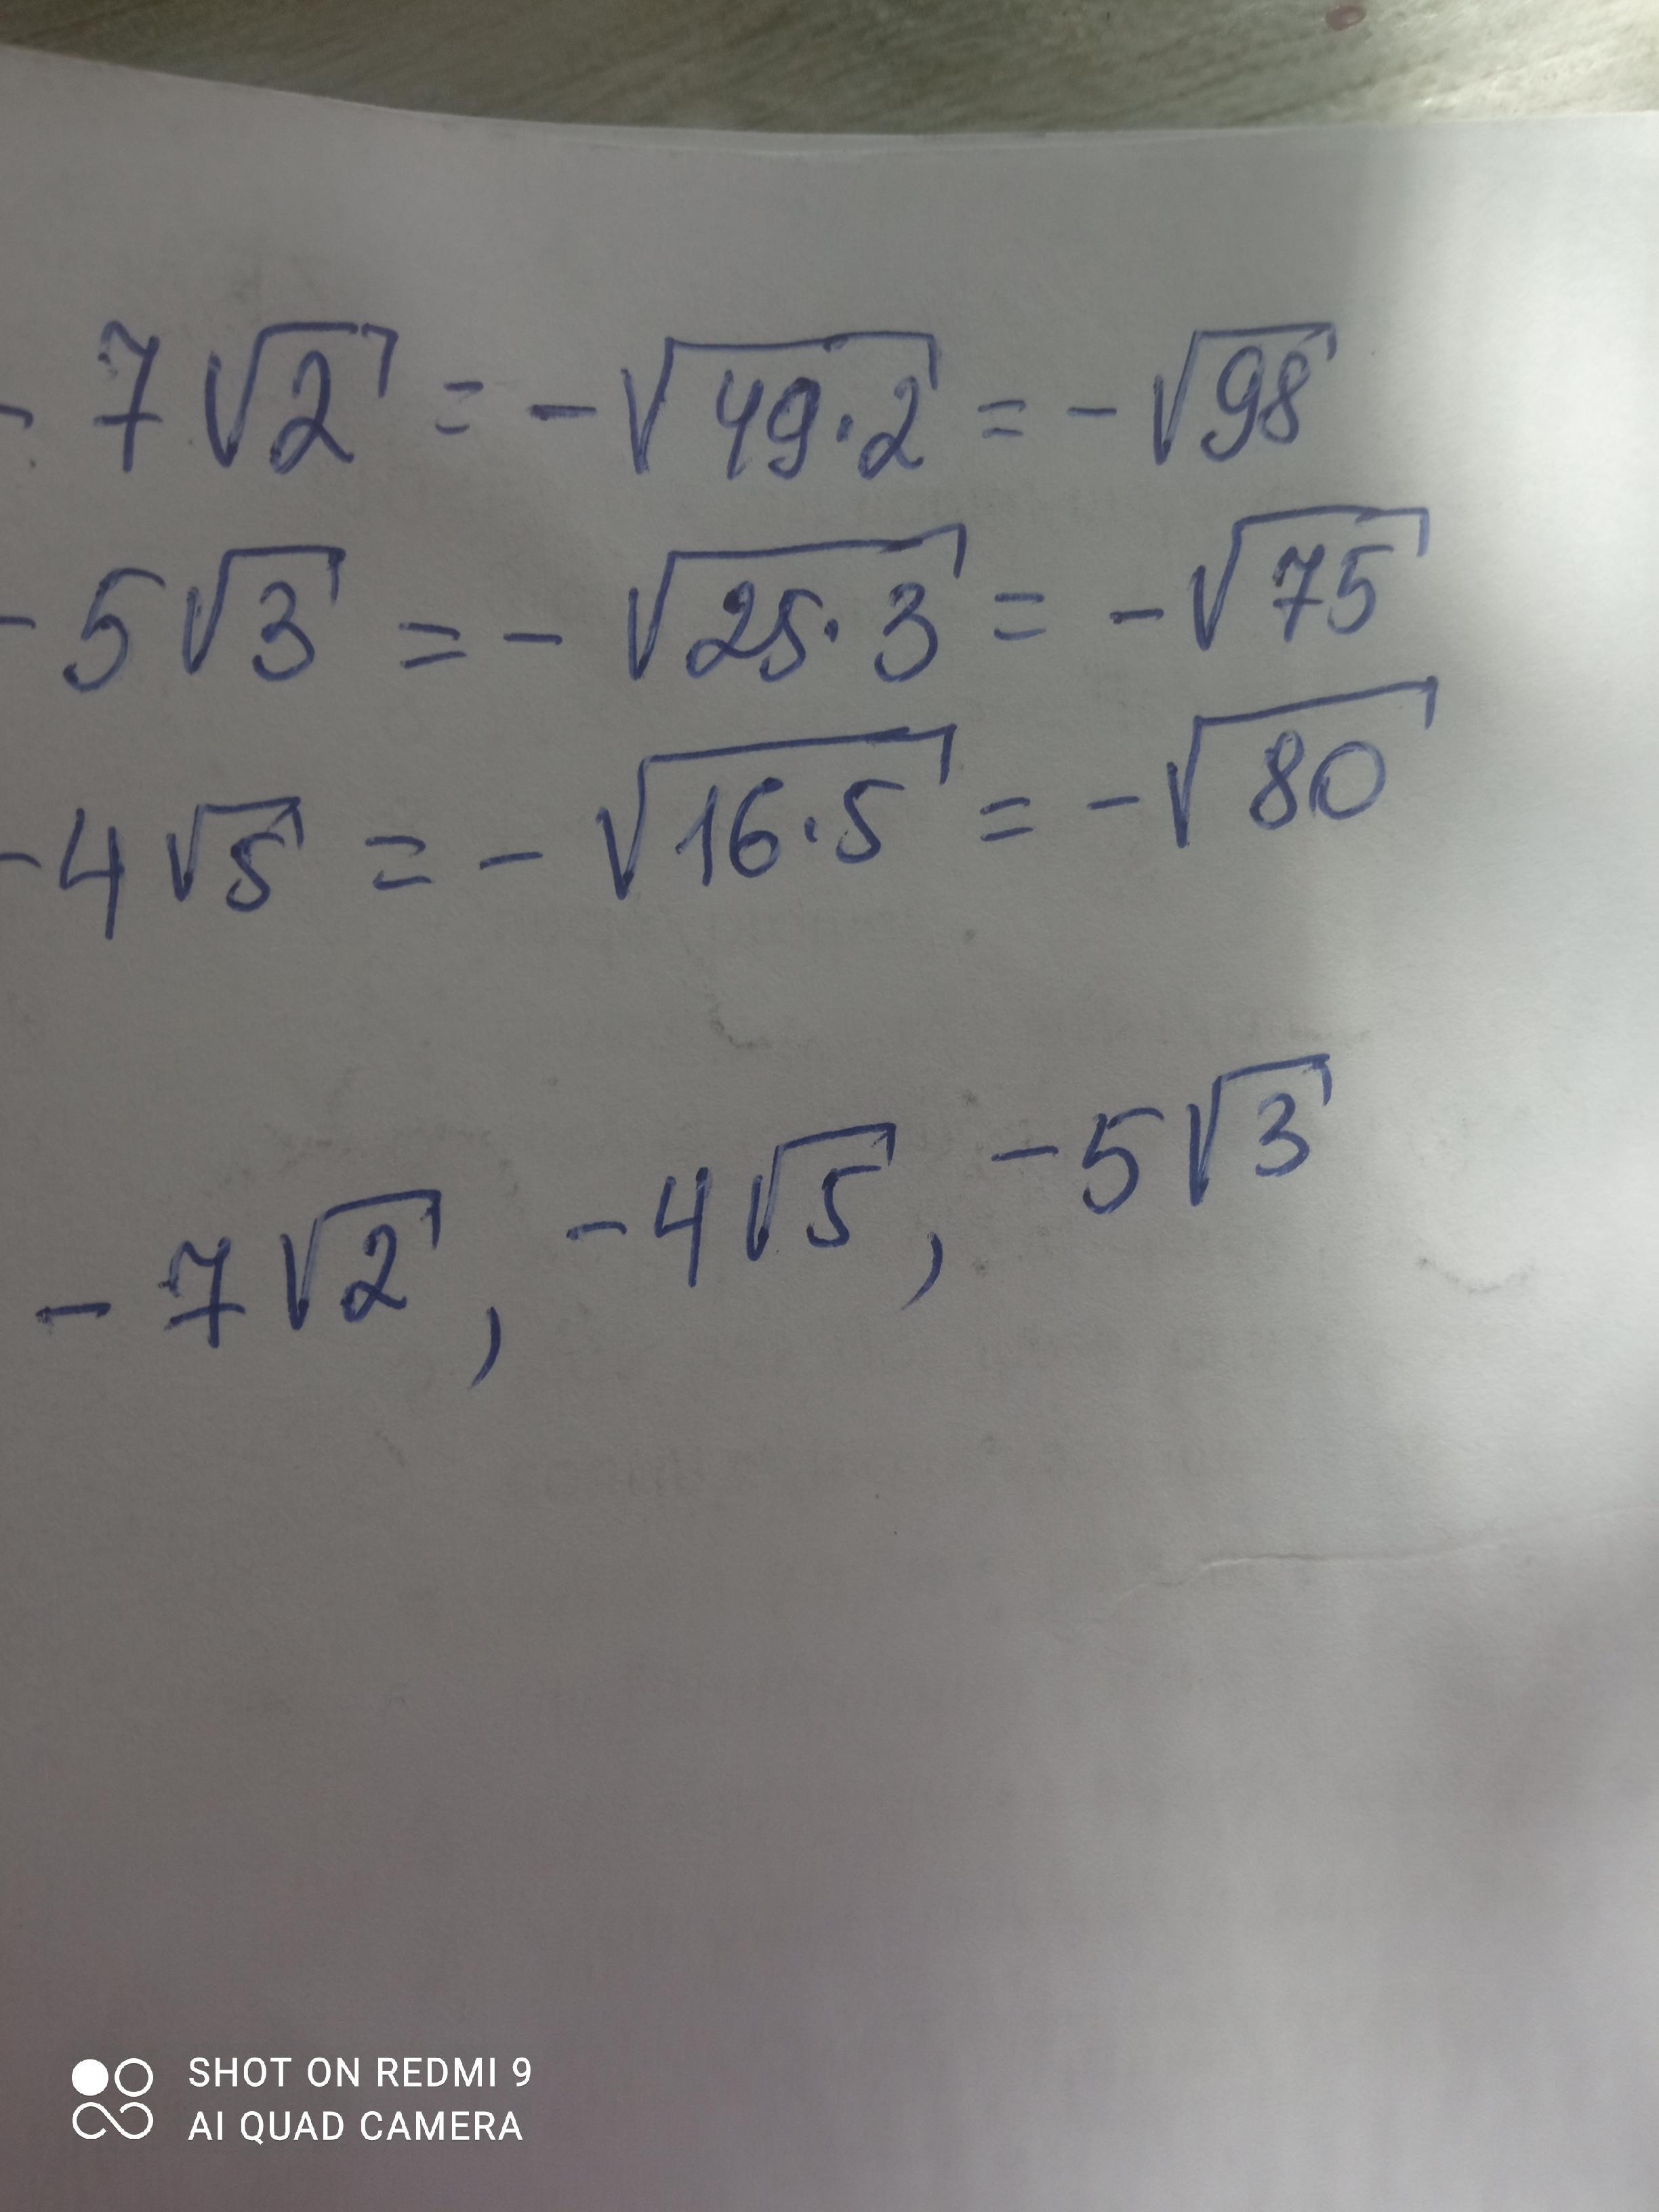 - 7√2 = -√49·2 = -√98
- 5√3 = -√25·3 = -√75
- 4√5 = -√16·5 = -√80
- 7√2, -4√5, -5√3
SHOT ON REDMI 9
AI QUAD CAMERA